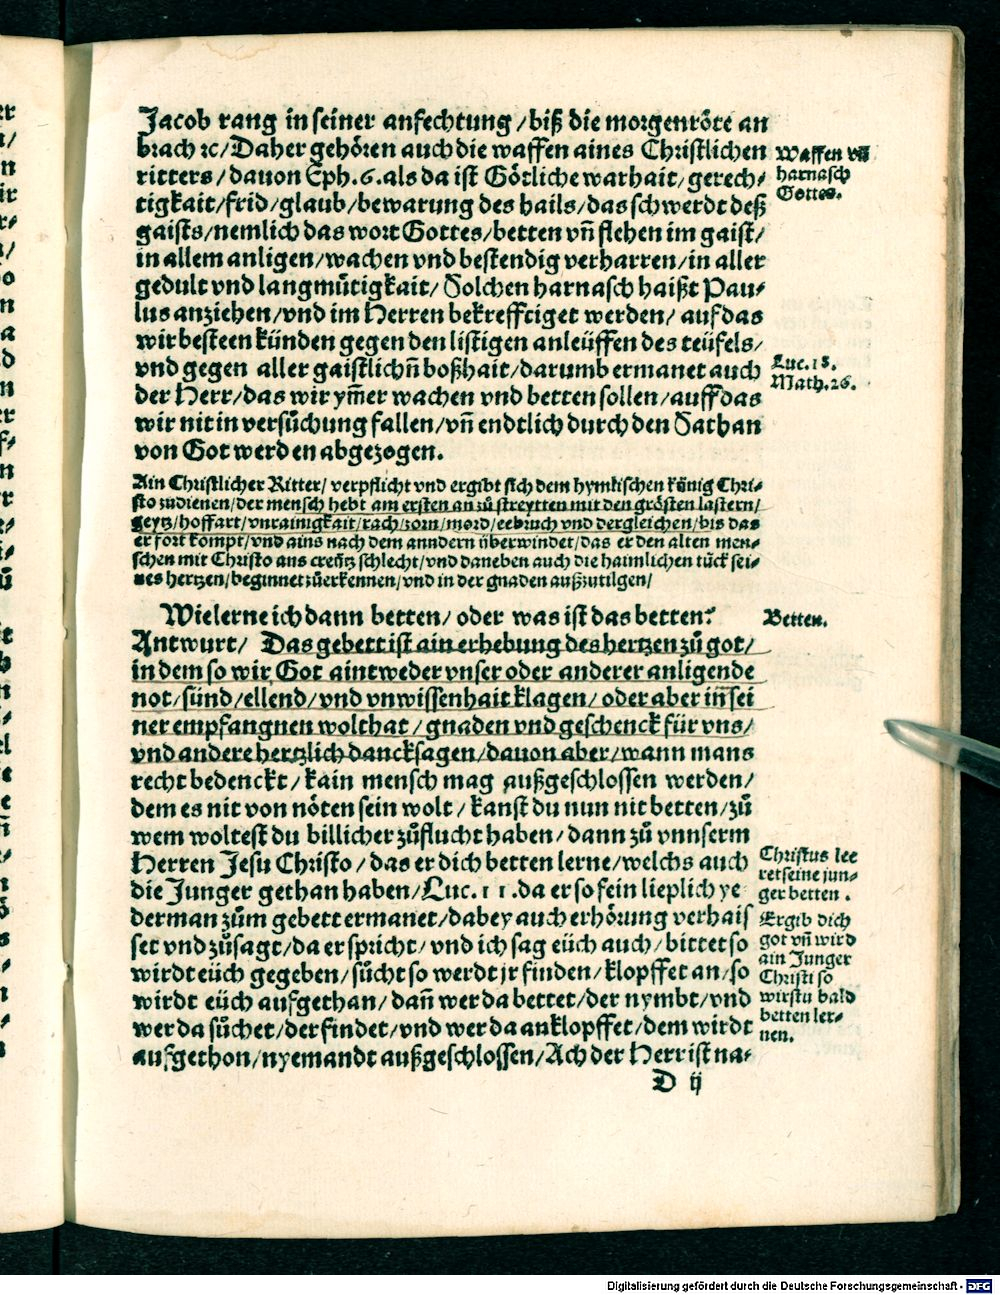 Jacob rang in seiner anfechtung / biß die morgenröte an
brach ⁊c / Daher gehören auch die waffen aines Christlichen
ritters / dauon Eph. 6. als da ist Götliche warhait / gerech-
tigkait / frid / glaub / bewarung des hails / das schwerdt deß
gaists / nemlich das wort Gottes / betten vñ flehen im gaist /
in allem anligen / wachen vnd bestendig verharren / in aller
gedult vnd langmůtigkait / Solchen harnasch haißt Pau-
lus anziehen / vnd im Herren bekrefftiget werden / auf das
wir besteen künden gegen den listigen anleüffen des teüfels /
vnd gegen aller gaistlichñ boßhait / darumb ermanet auch
der Herr / das wir ym̃er wachen vnd betten sollen / auff das
wir nit in versůchung fallen / vñ endtlich durch den Sathan
von Got werden abgezogen.
Waffen vñ
harnasch
Gottes.
Luc. 18.
Math. 26.
Ain Christlicher Ritter / verpflicht vnd ergibt sich dem hymlischen künig Chri-
sto zudienen / der mensch hebt am ersten an zů streytten mit den grösten lastern /
geytz / hoffart / vnrainigkait / rach / zorn / mord / eebruch vnd dergleichen / bis das
er fort kompt / vnd ains nach dem anndern überwindet / das er den alten men-
schen mit Christo ans creütz schlecht / vnd daneben auch die haimlichen tück sei-
nes hertzen / beginnet zůerkennen / vnd in der gnaden außzutilgen /
Wie lerne ich dann betten / oder was ist das betten?
Antwurt / Das gebett ist ain erhebung des hertzen zů got /
in dem so wir Got aintweder vnser oder anderer anligende
not / sünd / ellend / vnd vnwissenhait klagen / oder aber iñ sei
ner empfangnen wolthat / gnaden vnd geschenck für vns /
vnd andere hertzlich dancksagen / dauon aber / wann mans
recht bedenckt / kain mensch mag außgeschlossen werden /
dem es nit von nöten sein wolt / kanst du nun nit betten / zů
wem woltest du billicher zůflucht haben / dann zů vnnserm
Herren Jesu Christo / das er dich betten lerne / welchs auch
die Junger gethan haben / Luc. 11. da er so fein lieplich ye
derman zům gebett ermanet / dabey auch erhörung verhais
set vnd zůsagt / da er spricht / vnd ich sag eüch auch / bittet so
wirdt eüch gegeben / sůcht so werdt jr finden / klopffet an / so
wirdt eüch aufgethan / dañ wer da bettet / der nymbt / vnd
wer da sůchet / der findet / vnd wer da anklopffet / dem wirdt
aufgethon / nyemandt außgeschlossen / Ach der Herr ist na-
Betten.
Christus lee
ret seine jun-
ger betten.
Ergib dich
got vñ wird
ain Junger
Christi so
wirstu bald
betten ler-
nen.
D ij
Digitalisierung gefördert durch die Deutsche Forschungsgemeinschaft - DFG